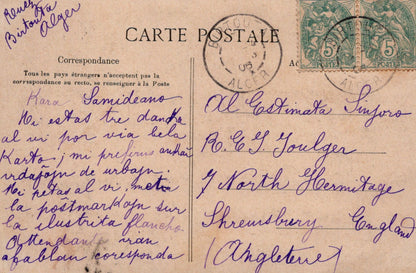 Birtouta
Alger
CARTE POSTALE
Correspondance
Tous les pays étrangers n'acceptent pas la
correspondance au recto, se renseigner à la Poste
ALGER
5
5
Kara Samideano
Mi estas tre danka
al vi por via bela
Karto; mi preferus ankaŭ
vidaĵojn de urbojn.
Mi petas al vi, metu
la poŝtmarkojn sur
la ilustrita flanko.
Attendante vian
afablan coresponda
Al Estimata Sinjoro
R. E. G. Joulger
7 North Hermitage
Shrewsbury England
(Angleterre)